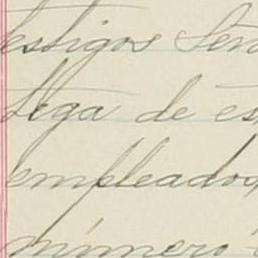 testigos Don
Lega de es
empleados,
número